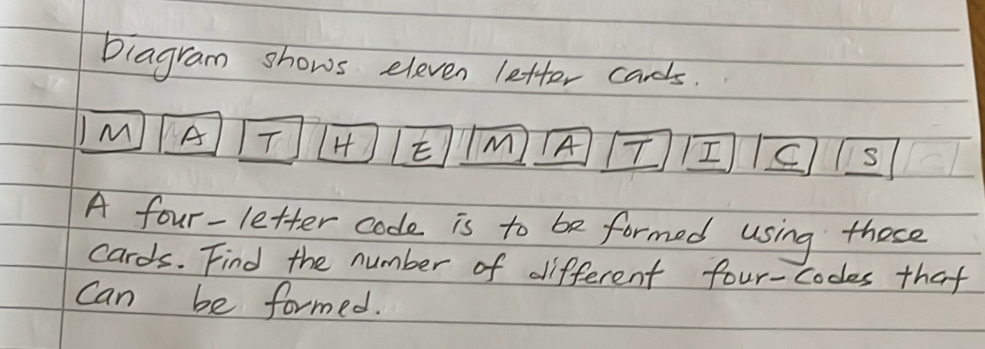 Diagram shows eleven letter cards.
M A T H E M A T I C S
A four-letter code is to be formed using these
cards. Find the number of different four-codes that
can be formed.